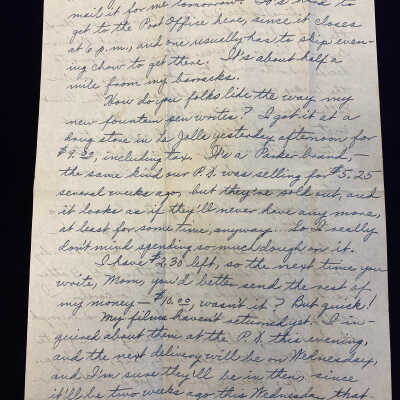 mail it for me tomorrow? It's hard to
get to the Post Office here, since it closes
at 6 p.m., and one usually has to skip even-
ing chow to get there. It's about half a
mile from my barracks.
How do you folks like the way my
new fountain pen writes? I got it at a
drug store in La Jolla yesterday afternoon for
including tax. It's a Parker brand,—
the same kind our P.X. was selling for $5.25
several weeks ago, but they're sold out, and
it looks as if they'll never have any more,
at least for some time, anyway. So I really
don't mind spending so much dough on it.
I have $2.30 left, so the next time you
write, Mom, you'd better send the rest of
my money — $10.00, wasn't it? But quick!
My films haven't returned yet. I in-
quired about them at the P.X. this evening,
and the next delivery will be on Wednesday,
and I'm sure they'll be in then, since
it'll be two weeks ago this Wednesday that